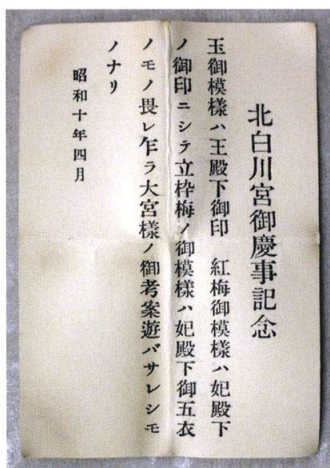 北白川宮御慶事記念
玉御模様ハ王殿下御印　紅梅御模様ハ妃殿下
ノ御印ニシラ立枠梅ノ御模様ハ妃殿下御五衣
ノモノ畏レ乍ラ大宮様ノ御考案遊バサレシモ
ノナリ
昭和十年四月